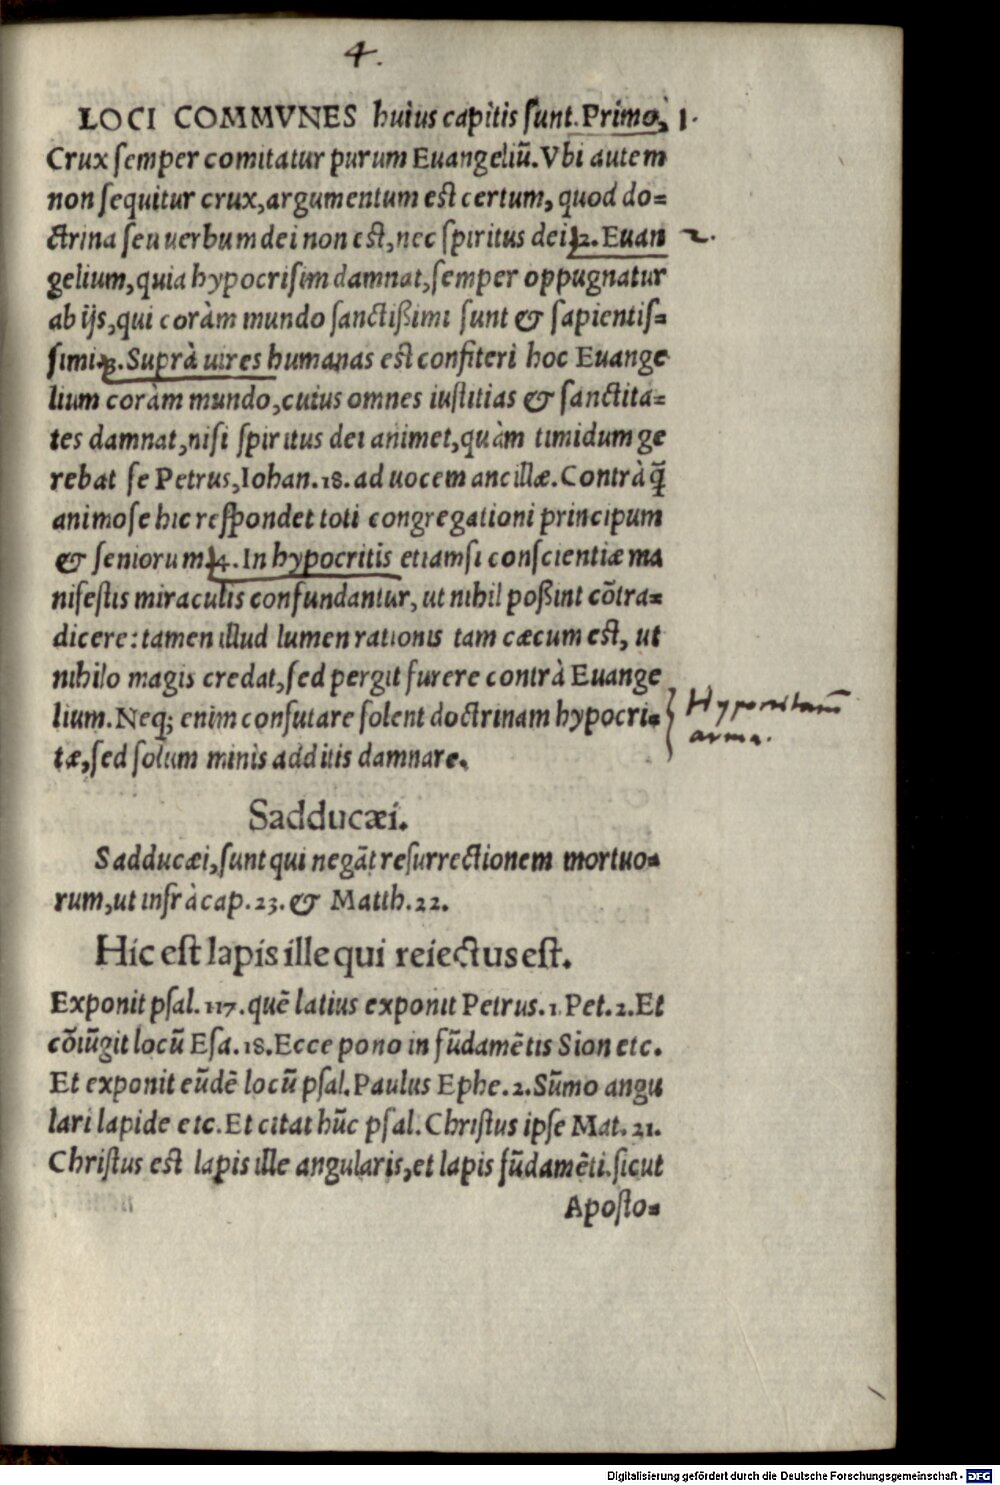 4.
LOCI COMMVNES huius capitis sunt. Primò, 1.
Crux semper comitatur purum Euangeliũ. Vbi autem
non sequitur crux, argumentum est certum, quod do=
ctrina seu uerbum dei non est, nec spiritus dei. 2. Euan 2.
gelium, quia hypocrisim damnat, semper oppugnatur
ab ijs, qui coràm mundo sanctißimi sunt & sapientis=
simi. 3. Suprà uires humanas est confiteri hoc Euange
lium coràm mundo, cuius omnes iustitias & sanctita=
tes damnat, nisi spiritus dei animet, quàm timidum ge
rebat se Petrus, Iohan. 18. ad uocem ancillæ. Contrà q̃
animose hic respondet toti congregationi principum
& seniorum. 4. In hypocritis etiamsi conscientiæ ma
nifestis miraculis confundantur, ut nihil poßint cõtra=
dicere: tamen illud lumen rationis tam cæcum est, ut
nihilo magis credat, sed pergit furere contrà Euange
lium. Neq; enim confutare solent doctrinam hypocri=
tæ, sed solum minis additis damnare.
Hypocritarũ
arma.
Sadducæi.
Sadducæi, sunt qui negãt resurrectionem mortuo=
rum, ut infrà cap. 23. & Matth. 22.
Hic est lapis ille qui reiectus est.
Exponit psal. 117. quẽ latius exponit Petrus. 1. Pet. 2. Et
cõiũgit locũ Esa. 18. Ecce pono in fũdamẽtis Sion etc.
Et exponit eũdẽ locũ psal. Paulus Ephe. 2. Sũmo angu
lari lapide etc. Et citat hũc psal. Christus ipse Mat. 21.
Christus est lapis ille angularis, et lapis fũdamẽti. sicut
Aposto=
Digitalisierung gefördert durch die Deutsche Forschungsgemeinschaft - DFG